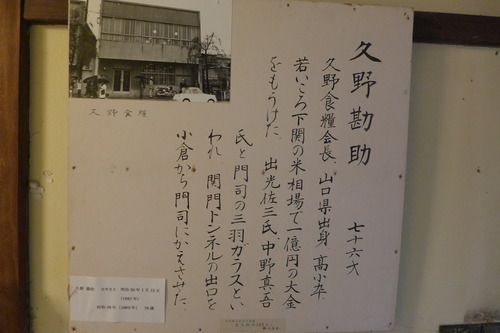 久野勘助
七十六才
久野食糧会長 山口県出身 高小卒
若いころ下関の米相場で一億円の大金
をもうけた 出光佐三氏、中野真吾
氏と門司の三羽ガラスとい
われ 関門トンネルの出口を
小倉から門司にかえさせた
久野食糧